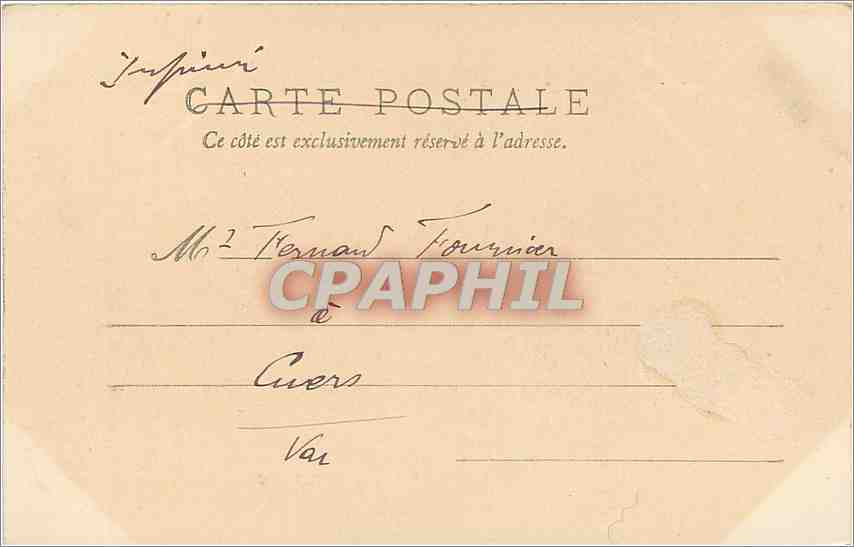 Imprimé
CARTE POSTALE
Ce côté est exclusivement réservé à l'adresse.
Mr Fernand Fournier
CPAPHIL
à
Cuers
Var